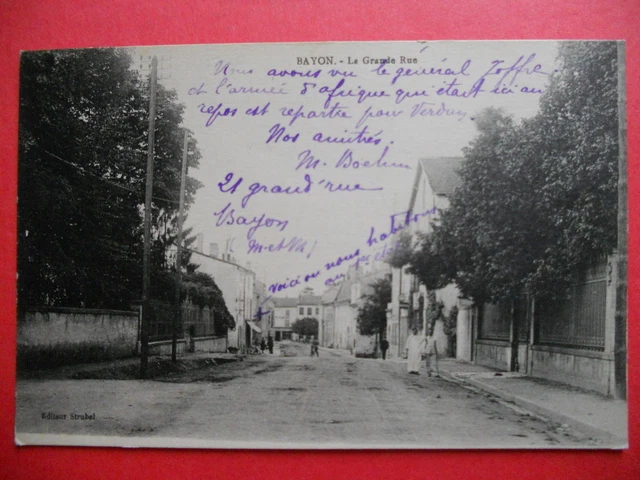 BAYON. - La Grande Rue
Nous avons vu le général Joffre
et l'armée d'afrique qui étant ici au
repos est repartie pour Verdun
Nos amitiés.
M. Boehm
21 grand'rue
Bayon
M-et-M
+ voici où nous habitons
au 1er
Editeur Strubel